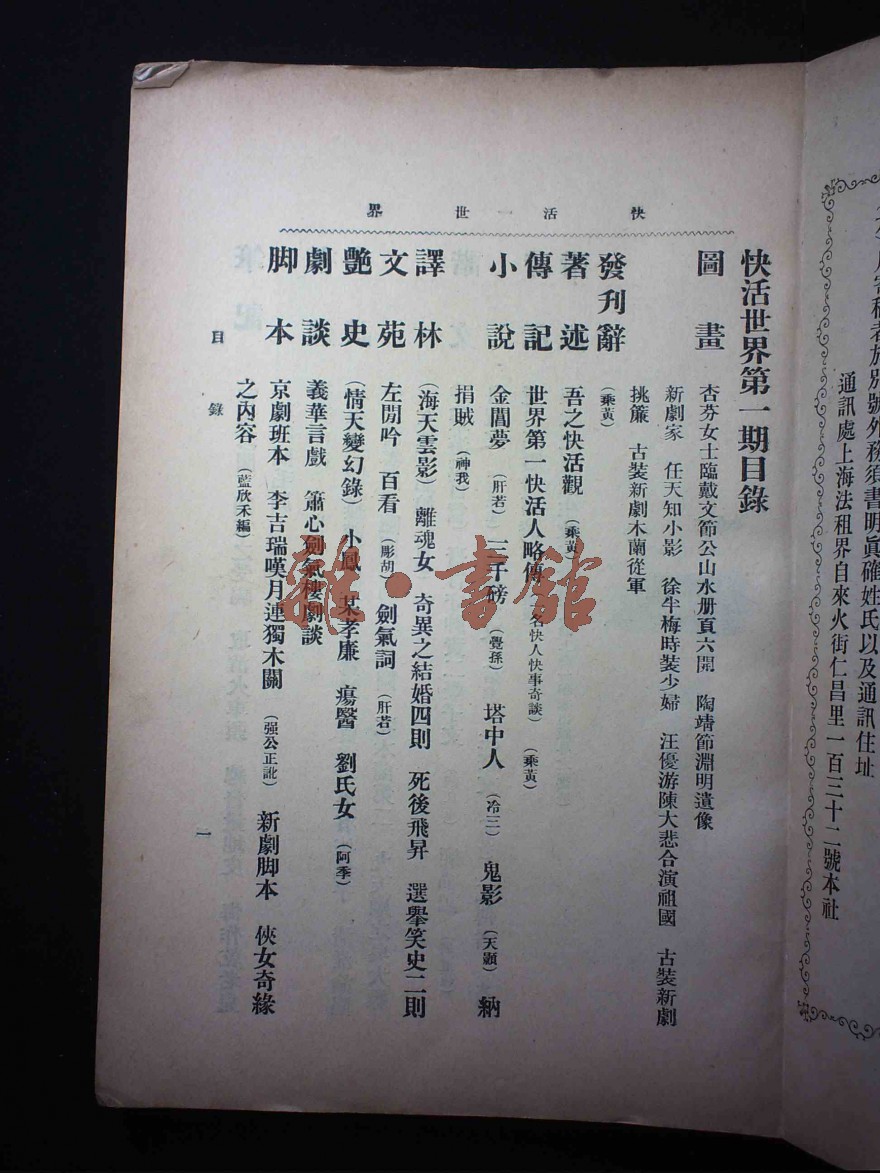 界世一活快
快活世界第一期目錄
圖畫 杏芬女士臨戴文節公山水册頁六開 陶靖節淵明遺像
新劇家 任天知小影 徐半梅時裝少婦 汪優游陳大悲合演祖國 古裝新劇
挑簾 古裝新劇木蘭從軍
發刊辭 (乘黃)
著述 吾之快活觀 (乘黃)
傳記 世界第一快活人略傳 (一名快人快事奇談) (乘黃)
小說 金閶夢 (肝若) 三千磅 (覺孫) 塔中人 (冷三) 鬼影 (天顯) 納
捐賊 (神我)
譯林 (海天雲影) 離魂女 奇異之結婚四則 死後飛昇 選舉笑史二則
文苑 左閒吟 百看 (彫胡) 劍氣詞 (肝若)
艷史 (情天變幻錄) 小鳳 某孝廉 瘍醫 劉氏女 (阿季)
劇談 義華言戲 簫心劍氣樓劇談
脚本 京劇班本 李吉瑞嘆月連獨木關 (强公正訛) 新劇脚本 俠女奇緣
之內容 (藍欣禾編)
目錄
一
雜·書館
號外務須書明眞確姓氏以及通訊住址
通訊處上海法租界自來火街仁昌里一百三十二號本社